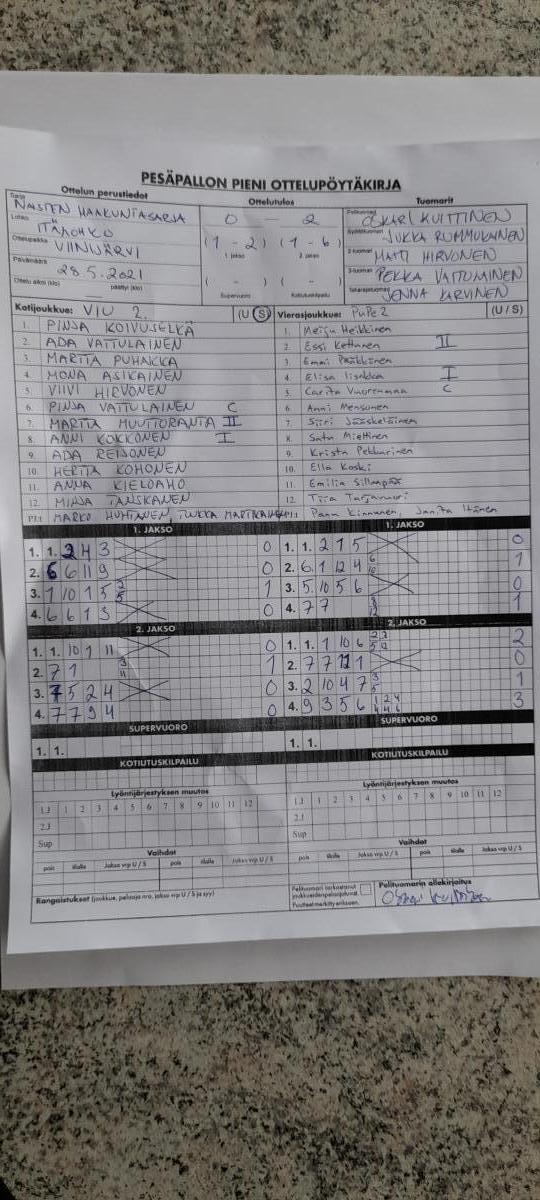 PESÄPALLON PIENI OTTELUPÖYTÄKIRJA
Ottelun perustiedot Ottelutulos Tuomarit
Sarja NAISTEN MAAKUNTASARJA 0 - 2 Pelituomari OSKARI KUITTINEN
Lohko ITÄLOHKO Syöttötuomari JUKKA RUMMUKAINEN
Ottelupaikka VIINIJÄRVI (1 - 2) (1 - 6) 2-tuomari MATTI HIRVONEN
1. jakso 2. jakso
Päivämäärä 28.5.2021 ( - ) ( - ) 3-tuomari PEKKA VATTULAINEN
Ottelu alkoi (klo) päättyi (klo) Supervuoro Kotiutuskilpailu Takarajatuomari JENNA KARVINEN
Kotijoukkue: VIU 2. (U / S) Vierasjoukkue: PuPe2 (U / S)
1. PINJA KOIVUSELKÄ 1. Meiju Heikkinen
2. ADA VATTULAINEN 2. Essi Kettunen II
3. MARTTA PUHAKKA 3. Emmi Pääkkönen
4. MONA ASIKAINEN 4. Elisa I
5. VIIVI HIRVONEN 5. Carita Vuorenmaa C
6. PINJA VATTULAINEN C 6. Anni Mensonen
7. MARTTA MUUTTORANTA II 7. Siiri Jääskeläinen
8. ANNI KOKKONEN I 8. Satu Miettinen
9. ADA REIJONEN 9. Krista Pekkarinen
10. HERTTA KOHONEN 10. Ella Koski
11. ANNA KIELOAHO 11. Emilia Sillanpää
12. MINJA TANSKANEN 12. Tiia
PJ: MARKO HUHTINEN, TUUKKA MARTIKAINEN PJ: Panu Kinnunen, Janita Itänen
1. JAKSO 1. JAKSO
1. 1. 2 4 3 0 1. 1. 2 1 5 0
2. 6 6 11 9 0 2. 6 1 12 4 6 10 1
3. 1 10 1 5 2 5 1 3. 5 10 5 6 0
4. 6 6 1 3 0 4. 7 7 1
2. JAKSO 2. JAKSO
1. 1. 10 1 11 0 1. 1. 1 10 6 2
2. 7 1 3 11 1 2. 7 7 12 1 0
3. 7 5 2 4 0 3. 2 10 4 7 3 5 1
4. 7 7 9 4 0 4. 9 3 5 6 3
SUPERVUORO SUPERVUORO
1. 1. 1. 1.
KOTIUTUSKILPAILU KOTIUTUSKILPAILU
Lyöntijärjestyksen muutos Lyöntijärjestyksen muutos
1.J 1 2 3 4 5 6 7 8 9 10 11 12 1.J 1 2 3 4 5 6 7 8 9 10 11 12
2.J 2.J
Sup Sup
Vaihdot Vaihdot
pois tilalle Jakso vrp U / S pois tilalle Jakso vrp U / S pois tilalle Jakso vrp U / S pois tilalle Jakso vrp U / S
Rangaistukset (joukkue, pelaaja nro, jakso vrp U / S ja syy)
Pelituomari tarkastanut joukkueiden pelaajatunnist. Puutteet merkitty erikseen.
Pelituomarin allekirjoitus